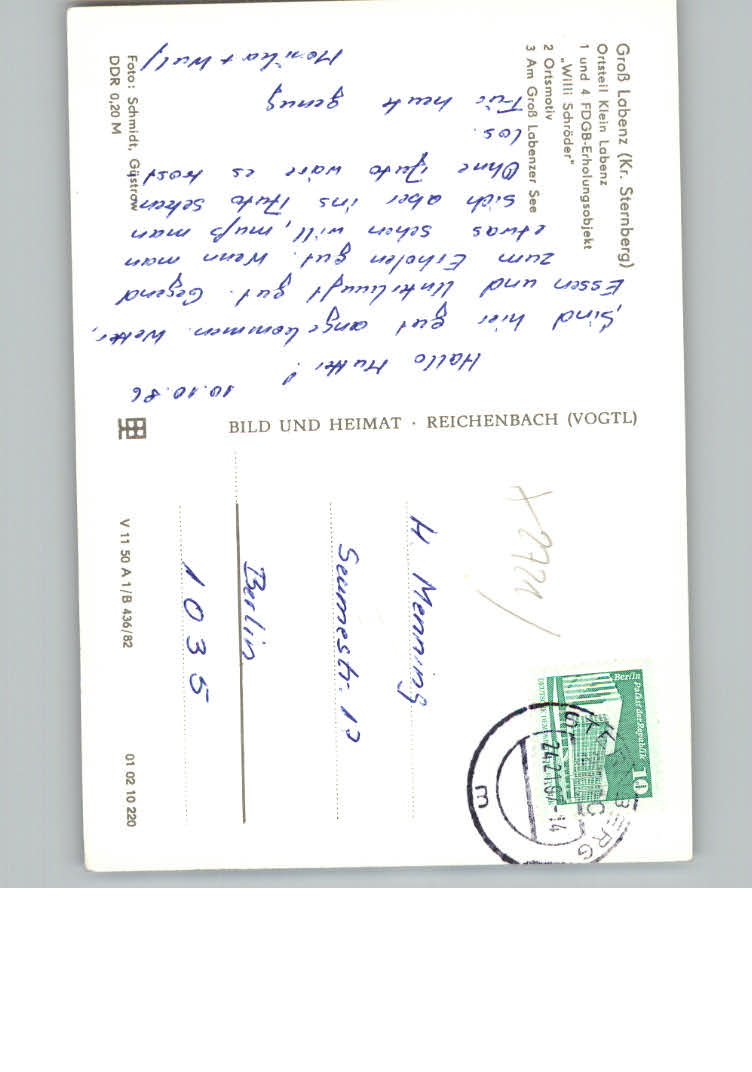 Groß Labenz (Kr. Sternberg)
Ortsteil Klein Labenz
1 und 4 FDGB-Erholungsobjekt
„Willi Schröder"
2 Ortsmotiv
3 Am Groß Labenzer See
Foto: Schmidt, Güstrow
DDR 0,20 M
10.10.86
Hallo Mutter!
Sind hier gut angekommen. Wetter,
Essen und Unterkunft gut. Gegend
zum Erholen gut. Wenn man
etwas sehen will, muß man
sich aber ins Auto setzen
Ohne Auto wäre es trost
los.
Für heute genug
Monika + Wulf
BILD UND HEIMAT · REICHENBACH (VOGTL)
V 11 50 A 1/B 436/82
01 02 10 220
x 2721/
H. Menning
Seumestr. 12
Berlin
1035
Berlin
Palast der Republik
10
m